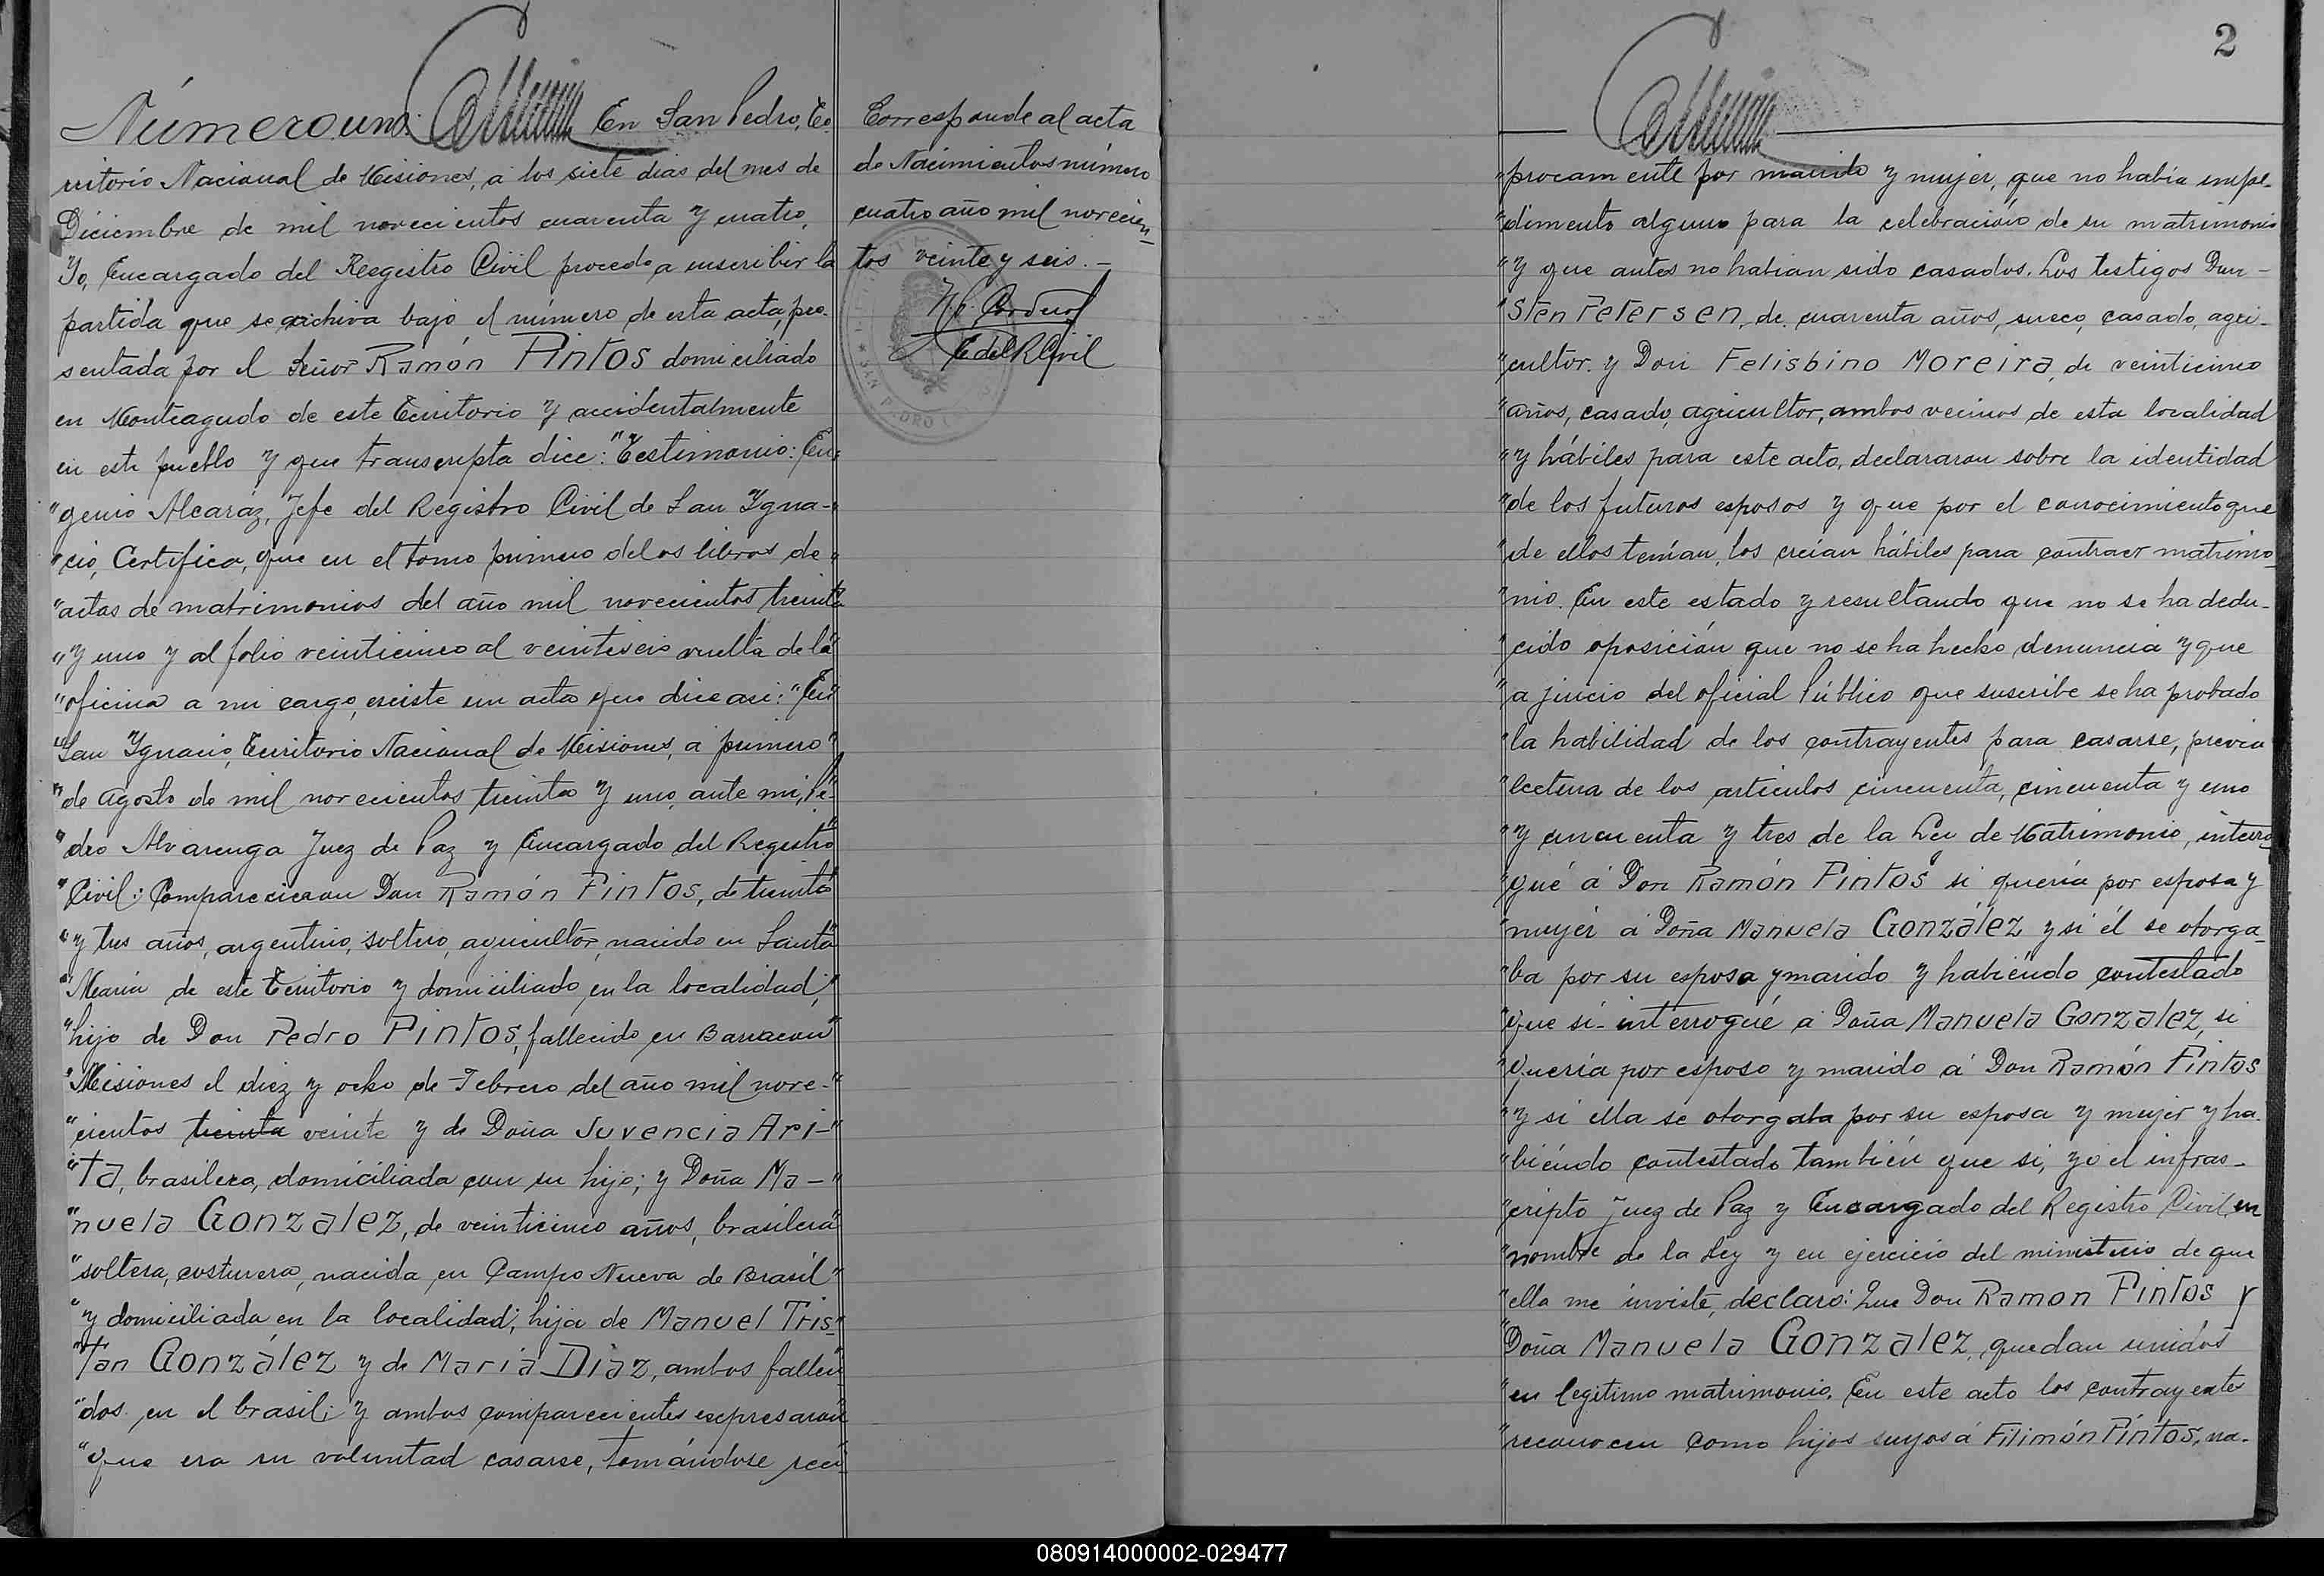 Número uno. En San Pedro, Te-
rritorio Nacional de Misiones, a los siete dias del mes de
Diciembre de mil novecientos cuarenta y cuatro,
Yo, Encargado del Reegistro Civil procedo a inscribir la
partida que se archiva bajo el número de esta acta, pre-
sentada por el Señor Ramón Pintos domiciliado
en Monteagudo de este Territorio y accidentalmente
en este pueblo y que transcripta dice: "Testimonio: Eu-
"genio Alcaráz, Jefe del Registro Civil de San Ygna-"
"cio, Certifica, que en el tomo primero de los libros de"
"actas de matrimonios del año mil novecientos treinta
"y uno y al folio veinticinco al veintiseis vuelta de la"
"oficina a mi cargo, eciste un acta que dice asi: "En"
"San Ygnacio, Territorio Nacional de Misiones, a primero"
"de Agosto de mil novecientos treinta y uno, ante mi, Pe-"
"dro Alvarenga Juez de Paz y Encargado del Registro"
"Civil: Comparecieron Don Ramón Pintos, de treinta"
"y tres años, argentino, soltero, agricultor, nacido en Santa"
"María de este Territorio y domiciliado en la localidad,"
"hijo de Don Pedro Pintos, fallecido en Barracón"
"Misiones el diez y ocho de Febrero del año mil nove-"
"cientos treinta veinte y de Doña Juvencia Ari-"
"ta, brasilera, domiciliada con su hijo; y Doña Ma-"
"nuela Gonzalez, de veinticinco años, brasilera"
"soltera, costurera, nacida en Campo Nueva de Brasil"
"y domiciliada en la localidad, hija de Manuel Tris-"
"tan González y de Maria Diaz, ambos falleci"
"dos en el brasil; y ambos comparecientes expresaron"
"que era su voluntad casarse, tomándose reci-
Corresponde al acta
de Nacimientos número
cuatro año mil novecien-
tos veinte y seis.-
E del R Civil
SAN PEDRO
2
"procamente por marido y mujer, que no había impe-
"dimento alguno para la celebración de su matrimonio
"y que antes no habian sido casados. Los testigos Dun-
"sten Petersen, de cuarenta años, sueco, casado, agri-
"cultor y Don Felisbino Moreira, de veinticinco
"años, casado, agricultor, ambos vecinos de esta localidad
"y hábiles para este acto, declararon sobre la identidad
"de los futuros esposos y que por el conocimiento que
"de ellos tenían, los creían hábiles para contraer matrimo-
"nio. En este estado y resultando que no se ha dedu-
"cido oposición que no se ha hecho denuncia y que
"a juicio del oficial Público que suscribe se ha probado
"la habilidad de los contrayentes para casarse, previa
"lectura de los articulos cincuenta, cincuenta y uno
"y cincuenta y tres de la Ley de Matrimonio, interro-
"gué á Don Ramón Pintos si quería por esposa y
"mujer á Doña Manuela González y si él se otorga-
"ba por su esposo y marido y habiéndo contestado
"que sí- interrogué á Doña Manuela Gonzalez, si
"quería por esposo y marido á Don Ramón Pintos
"y si ella se otorgaba por su esposa y mujer y ha-
"biéndo contestado también que si, yo el infras-
"cripto Juez de Paz y Encargado del Registro Civil, en
"nombre de la Ley y en ejercicio del ministerio de que
"ella me inviste, declaro: Que Don Ramon Pintos y
"Doña Manuela Gonzalez, quedan unidos
"en legitimo matrimonio. En este acto los contrayentes
"reconocen como hijos suyos á Filimón Pintos, na-
080914000002-029477